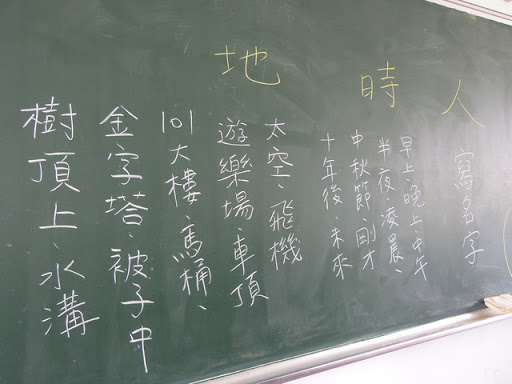 人
寫名字
時
早上、晚上、中午
半夜、凌晨、
中秋節、剛才
十年後、未來
地
太空、飛機
遊樂場、車頂
101大樓、馬桶、
金字塔、被子中
樹頂上、水溝